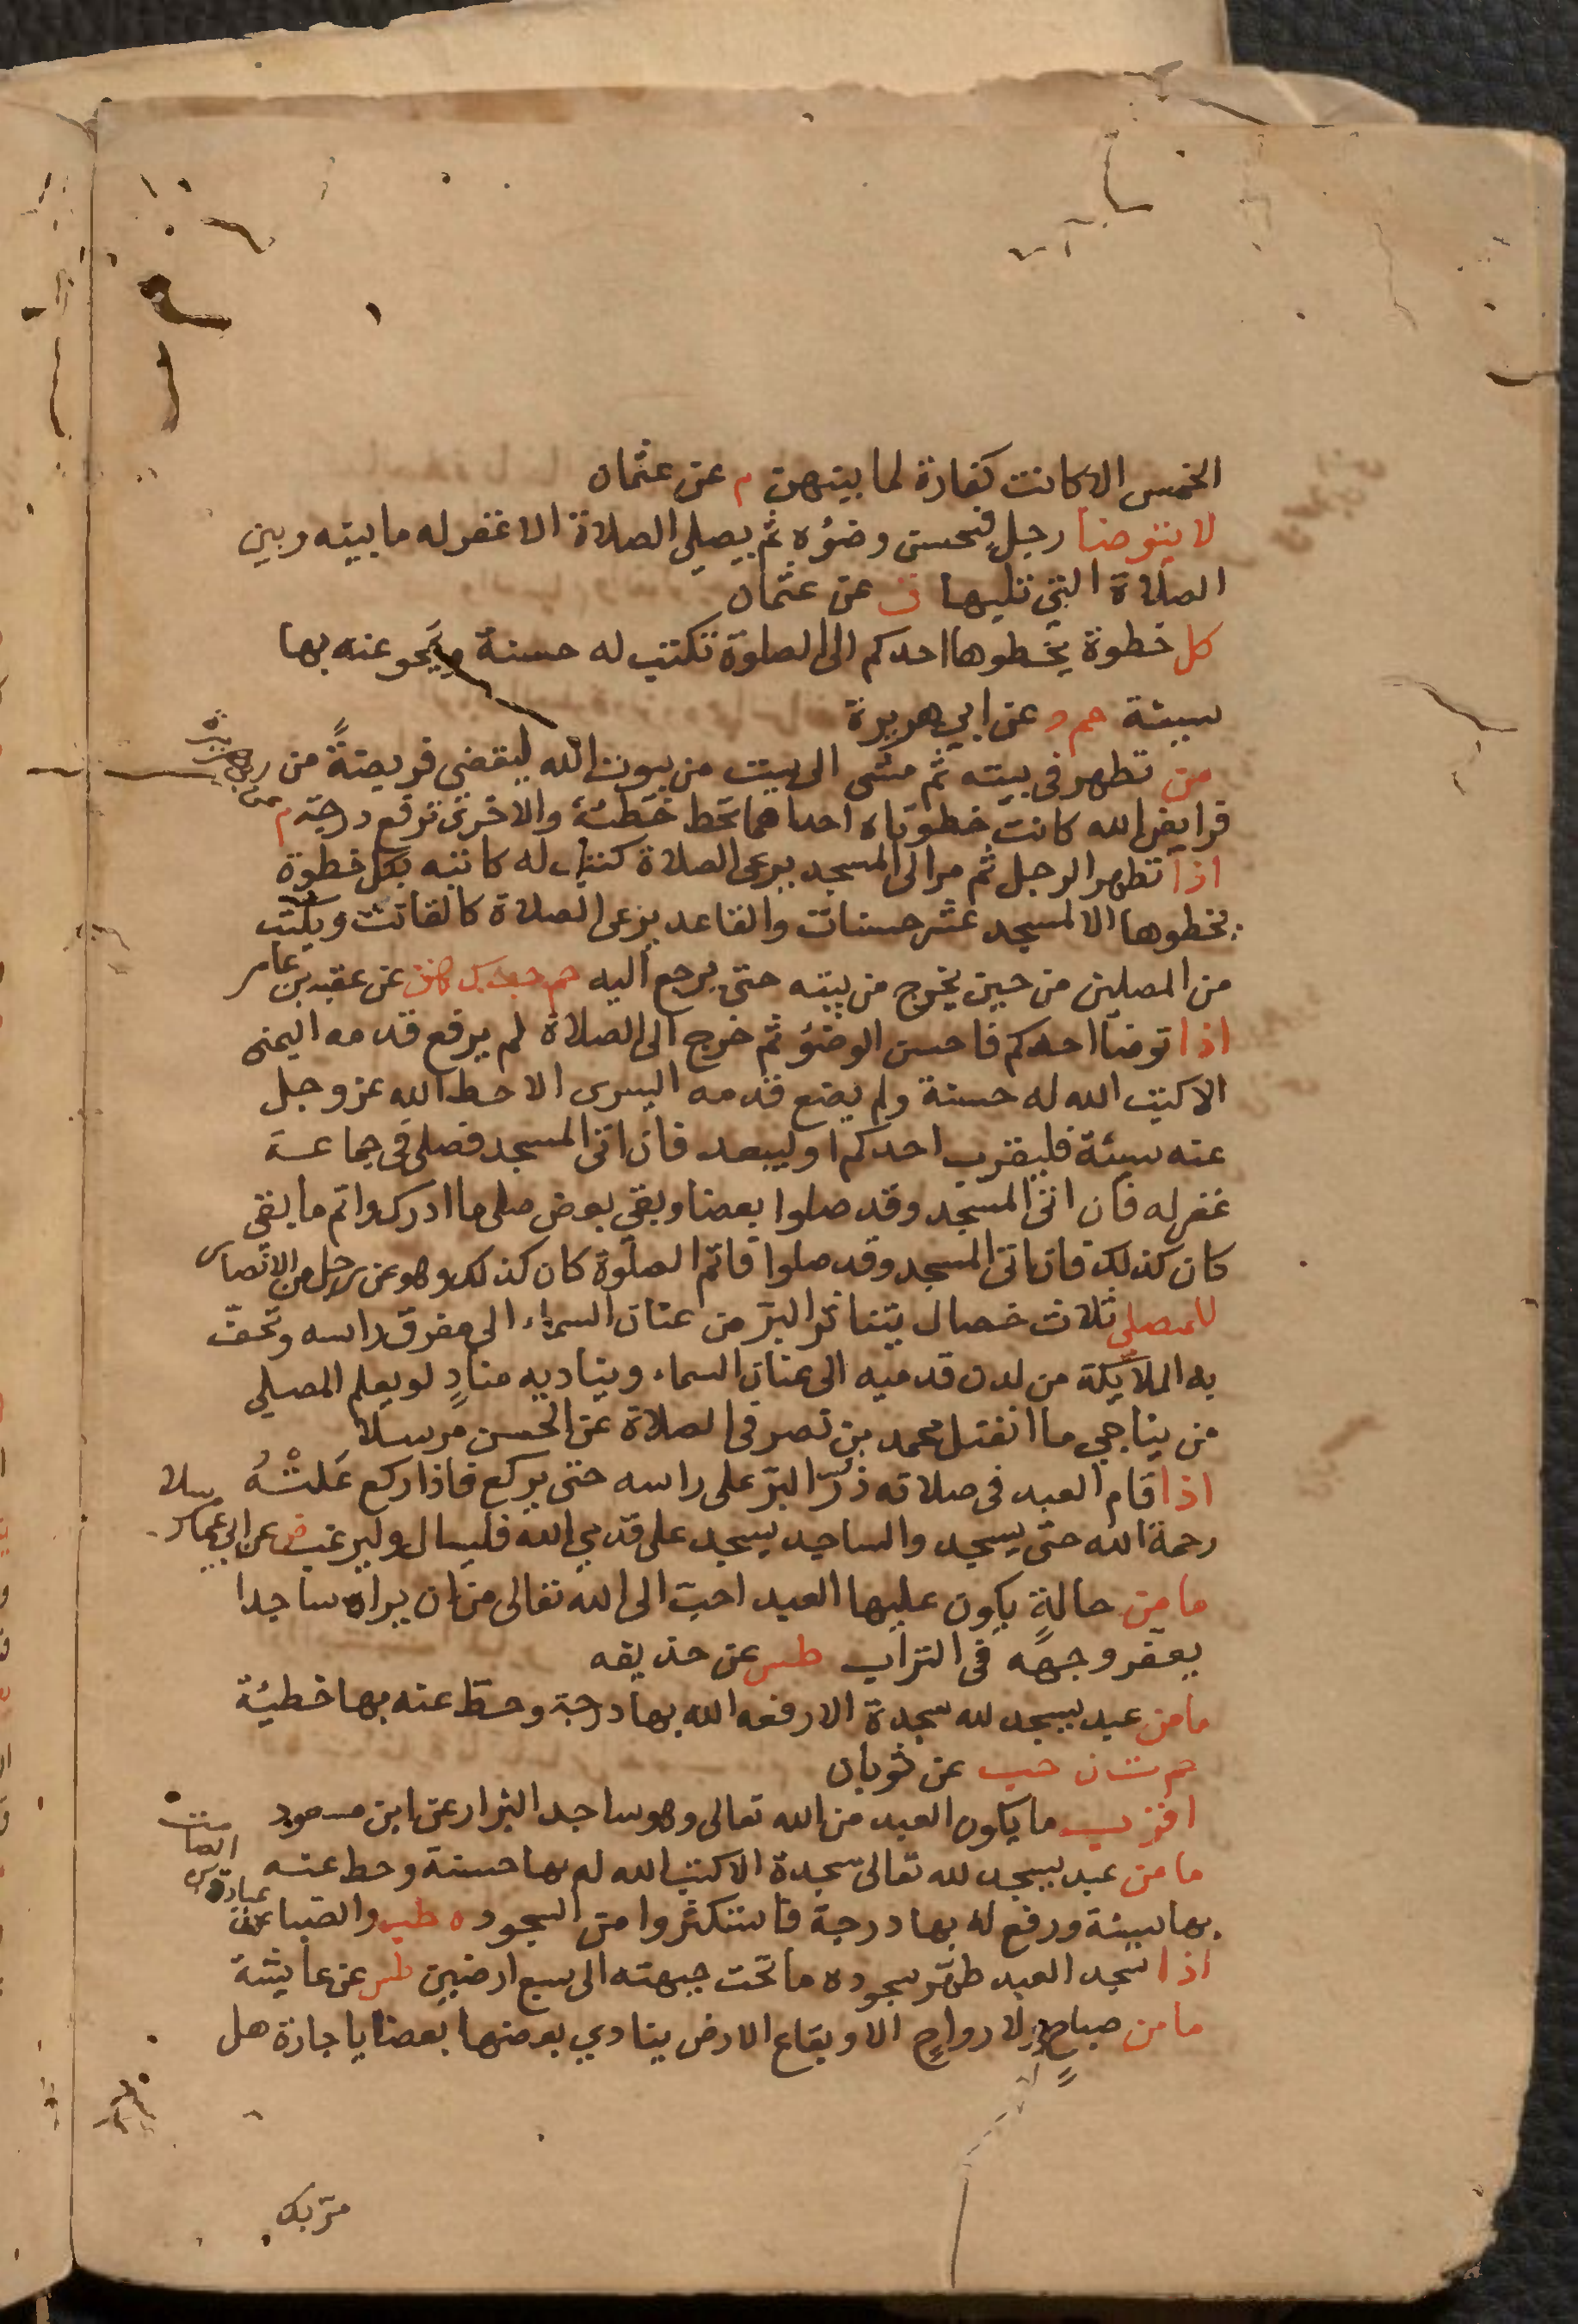 الخمس الا كانت كفارة لما بينهن م عن عثمان
لا يتوضا رجل فيحسن وضؤه ثم يصلي الصلاة الا غفر له ما بينه وبين
الصلاة التي تليها ق عن عثمان
كل خطوة يخطوها احدكم الى الصلوة تكتب له حسنة ويمحو عنه بها
سيئة حم عن ابي هريرة
من تطهر في بيته ثم مشى الى بيت من بيوت الله ليقضي فريضةً من
فرايض الله كانت خطوتاه احداهما تحط خطئة والاخرى ترفع درجة م عن
اذا تطهر الرجل ثم مر الى المسجد يرعى الصلاة كتب له كاتبه بكل خطوة
يخطوها الا لمسجد عشر حسنات والقاعد يرعى الصلاة كالقانت ويكتب
من المصلين من حين يخرج من بيته حتى يرجع اليه حم حب ك هق عن عقبه بن عامر
اذا توضا احدكم فاحسن الوضؤ ثم خرج الى الصلاة لم يرفع قدمه اليمنى
الا كتب الله له حسنة ولم يضع قدمه اليسرى الا حط الله عز وجل
عنه سيئة فليقرب احدكم او ليبعد فان اتى المسجد فصلى في جماعة
غفر له فان اتى المسجد وقد صلوا بعضا وبقي بعض صلى ما ادرك واتم ما بقي
كان كذلك فان اتى المسجد وقد صلوا فاتم الصلوة كان كذلك وهو عن رجل من الانصار
للمصلي ثلاث خصال يتناثر البرّ من عنان السماء الى مفرق راسه وتحفّ
به الملايكة من لدن قدميه الى عنان السماء ويناديه منادٍ لو يعلم المصلي
من يناجي ما انفتل محمد بن نصر في الصلاة عن الحسن مرسلا
اذا قام العبد في صلاته ذرّ البرّ على راسه حتى يركع فاذا ركع عَلتْهُ
رحمة الله حتى يسجد والساجد يسجد على قدمي الله فليسال وليرغب ص عن ابي عمار مرسلا
ما من حالةٍ يكون عليها العبد احبّ الى الله تعالى من ان يراه ساجدا
يعفر وجهه في التراب طس عن حذيفه
ما من عبد يسجد لله سجدة الا رفعه الله بها درجة وحطّ عنه بها خطيئة
حم ت ن حب عن ثوبان
اقرب ما يكون العبد من الله تعالى وهو ساجد البزار عن ابن مسعود
ما من عبد يسجد لله تعالى سجدة الا كتب الله له بها حسنة وحط عنه
بها سيئة ورفع له بها درجة فاستكثروا من السجود ه طب والضيا عن عبادة بن الصامت
اذا سجد العبد طهّر سجوده ما تحت جبهته الى سبع ارضين طس عن عايشة
ما من صباحٍ ولا رواحٍ الا وبقاع الارض ينادي بعضها بعضا يا جارة هل
مرّ بك